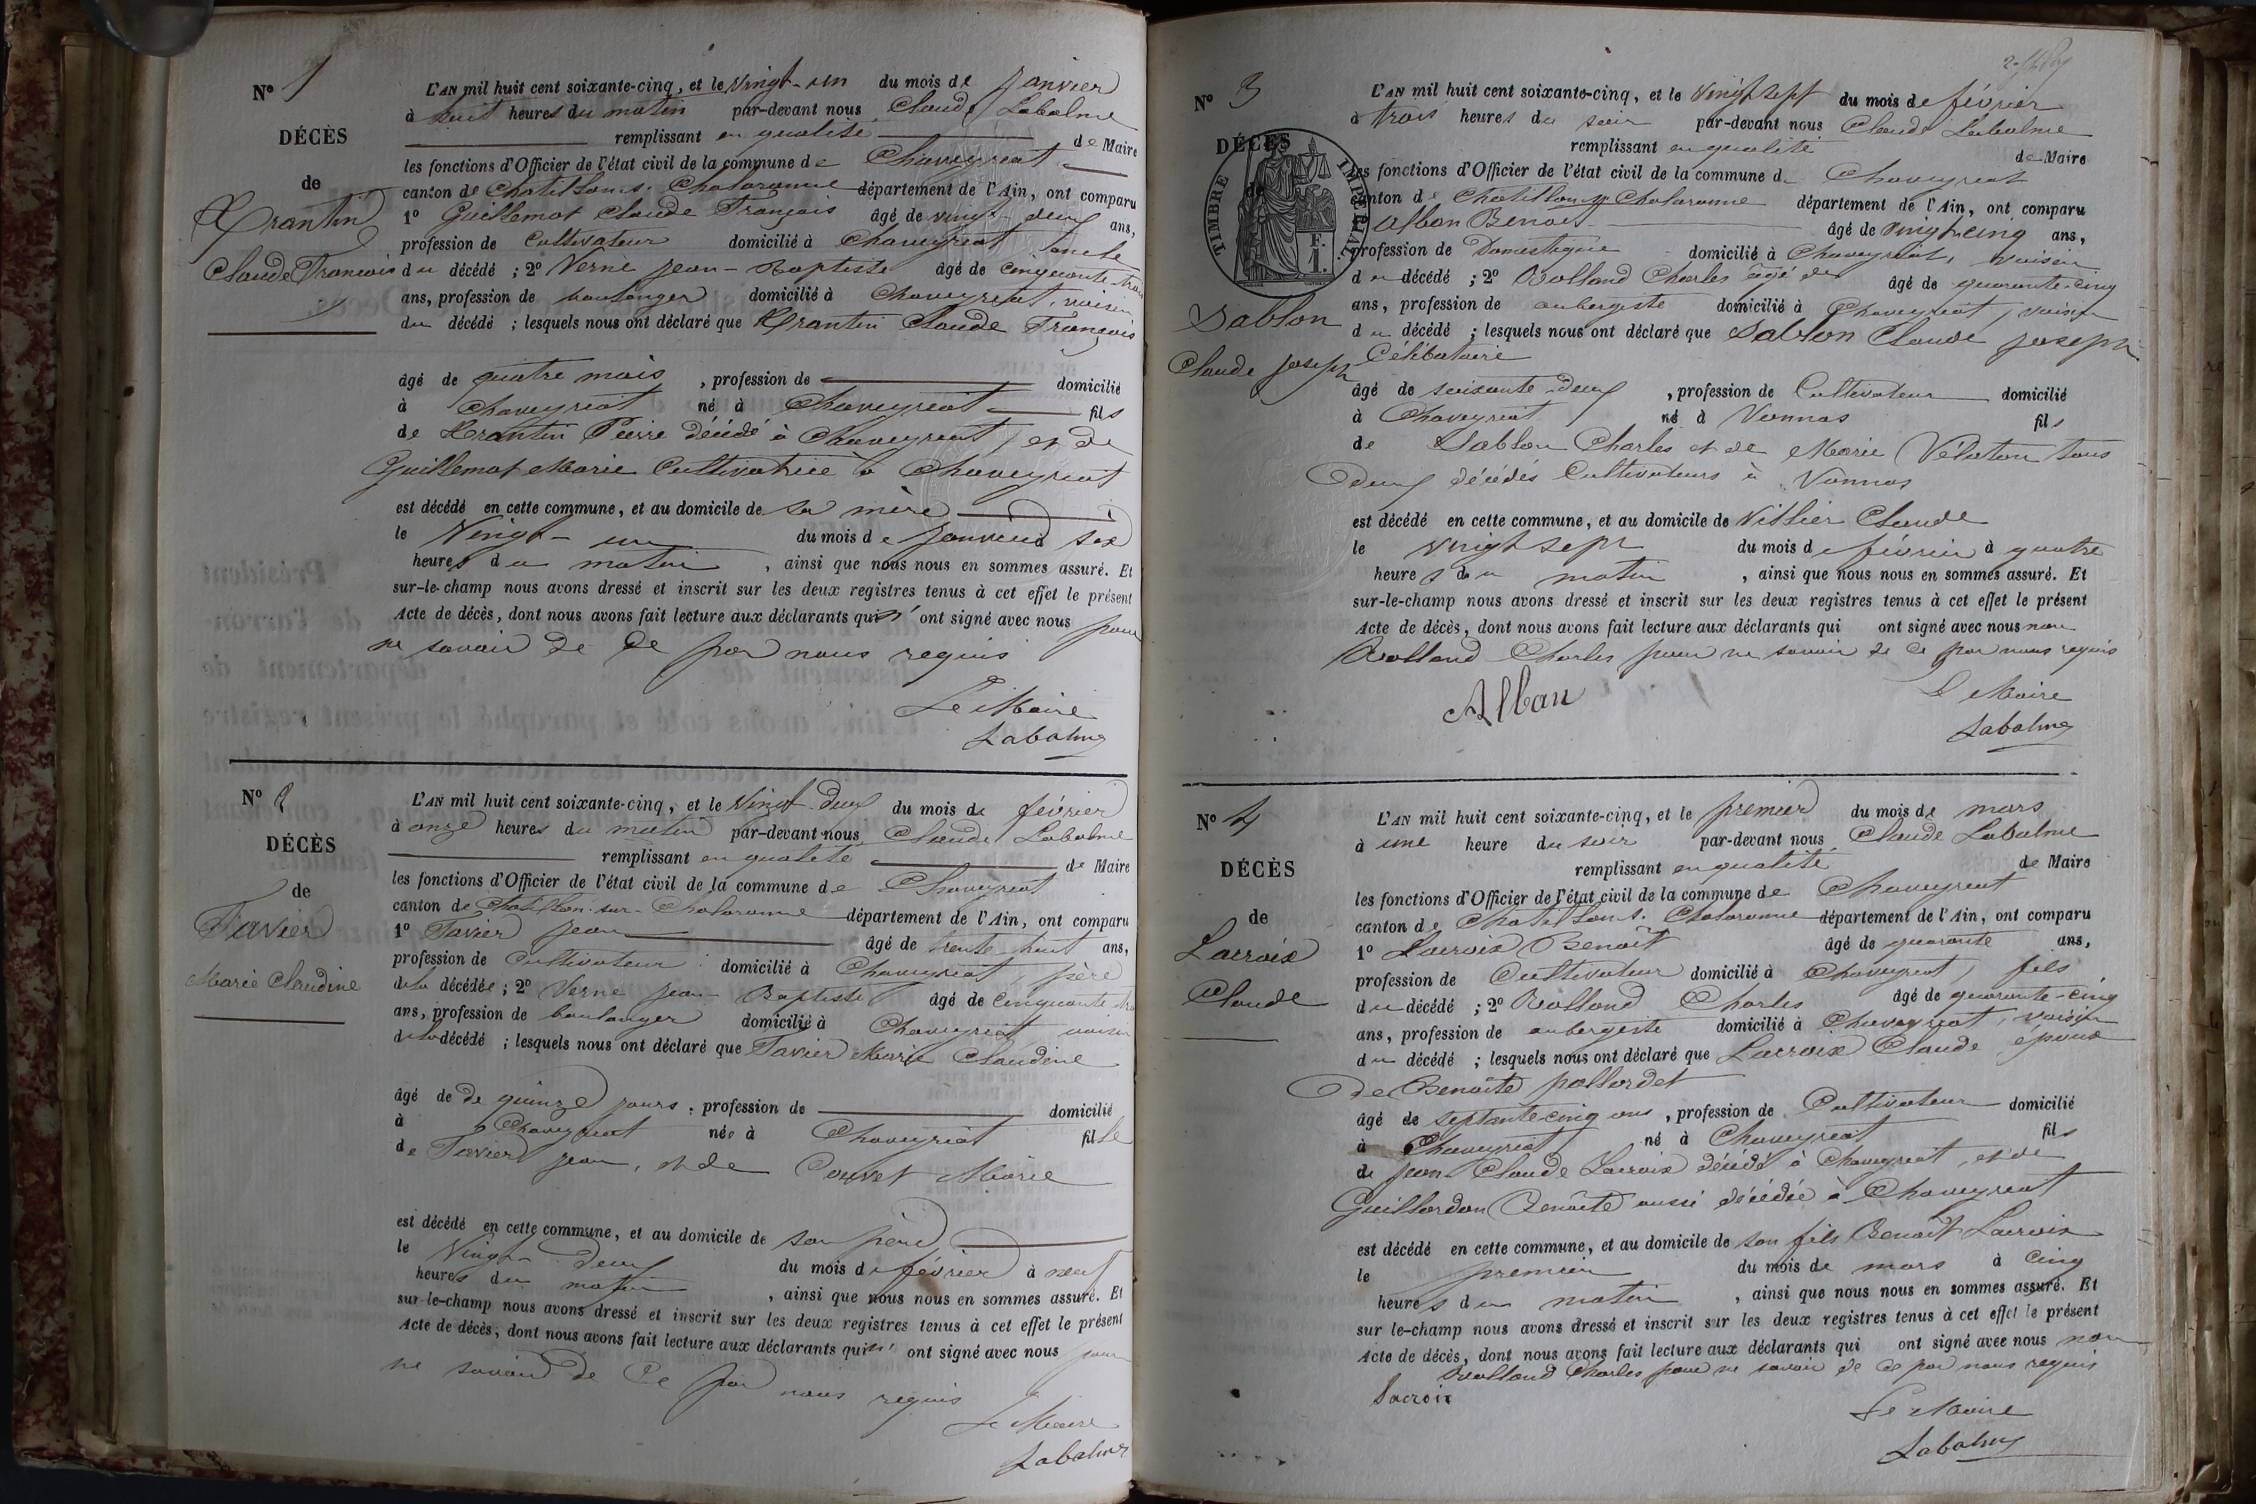 N° 1
DÉCÈS
de
Krantin
Claude François
L'AN mil huit cent soixante-cinq, et le Vingt-un du mois de Janvier
à huit heures du matin par-devant nous Claude Labalme
remplissant en qualité de Maire
les fonctions d'Officier de l'état civil de la commune de Chaveyriat
canton de Chatillon s. Chalaronne département de l'Ain, ont comparu
1° Guillemot Claude François âgé de vingt-deux ans,
profession de Cultivateur domicilié à Chaveyriat oncle
du décédé ; 2° Verne Jean-Baptiste âgé de cinquante-trois
ans, profession de boulanger domicilié à Chaveyriat, voisin
du décédé ; lesquels nous ont déclaré que Krantin Claude François
âgé de quatre mois , profession de domicilié
à Chaveyriat né à Chaveyriat fils
de Krantin Pierre décédé à Chaveyriat, et de
Guillemot Marie Cultivatrice à Chaveyriat
est décédé en cette commune, et au domicile de sa mère
le Vingt-un du mois de Janvier à six
heures du matin , ainsi que nous nous en sommes assuré. Et
sur-le-champ nous avons dressé et inscrit sur les deux registres tenus à cet effet le présent
Acte de décès, dont nous avons fait lecture aux déclarants qui n'ont signé avec nous pour
ne savoir de Ce par nous requis
Le Maire
Labalme
N° 2
DÉCÈS
de
Tavier
Marie Claudine
L'AN mil huit cent soixante-cinq, et le Vingt-deux du mois de février
à onze heures du matin par-devant nous Claude Labalme
remplissant en qualité de Maire
les fonctions d'Officier de l'état civil de la commune de Chaveyriat
canton de Chatillon-sur-Chalaronne département de l'Ain, ont comparu
1° Tavier Jean âgé de trente huit ans,
profession de Cultivateur domicilié à Chaveyriat, père
de la décédée ; 2° Verne Jean-Baptiste âgé de cinquante
ans, profession de boulanger domicilié à Chaveyriat voisin
de la décédé ; lesquels nous ont déclaré que Tavier Marie Claudine
âgé de de quinze jours , profession de domicilié
à Chaveyriat née à Chaveyriat fille
de Tavier Jean, et de Couvet Marie
est décédé en cette commune, et au domicile de son père
le Vingt-deux du mois de février à neuf
heures du matin , ainsi que nous nous en sommes assuré. Et
sur-le-champ nous avons dressé et inscrit sur les deux registres tenus à cet effet le présent
Acte de décès, dont nous avons fait lecture aux déclarants qui n'ont signé avec nous pour
ne savoir de Ce par nous requis
Le Maire
Labalme
N° 3
DÉCÈS
de
TIMBRE IMPÉRIAL
F.
1.
Sablon
Claude Joseph
L'AN mil huit cent soixante-cinq, et le Vingt sept du mois de février
à trois heures du soir par-devant nous Claude Labalme
remplissant en qualité de Maire
les fonctions d'Officier de l'état civil de la commune de Chaveyriat
canton de Chatillon s. Chalaronne département de l'Ain, ont comparu
Alban Benoit âgé de vingt-cinq ans,
profession de Domestique domicilié à Chaveyriat, voisin
du décédé ; 2° Rolland Charles âgé de âgé de quarante-cinq
ans, profession de aubergiste domicilié à Chaveyriat, voisin
du décédé ; lesquels nous ont déclaré que Sablon Claude Joseph
Célibataire
âgé de soixante-deux , profession de Cultivateur domicilié
à Chaveyriat né à Vonnas fils
de Sablon Charles et de Marie Véleton tous
deux décédés Cultivateurs à Vonnas
est décédé en cette commune, et au domicile de Villier Claude
le vingt sept du mois de février à quatre
heures du matin , ainsi que nous nous en sommes assuré. Et
sur-le-champ nous avons dressé et inscrit sur les deux registres tenus à cet effet le présent
Acte de décès, dont nous avons fait lecture aux déclarants qui ont signé avec nous non
Rolland Charles pour ne savoir de ce par nous requis
Alban
Le Maire
Labalme
N° 4
DÉCÈS
de
Lacroix
Claude
L'AN mil huit cent soixante-cinq, et le premier du mois de mars
à une heure du soir par-devant nous Claude Labalme
remplissant en qualité de Maire
les fonctions d'Officier de l'état civil de la commune de Chaveyriat
canton de Chatillon s. Chalaronne département de l'Ain, ont comparu
1° Lacroix Benoît âgé de quarante ans,
profession de Cultivateur domicilié à Chaveyriat, fils
du décédé ; 2° Rolland Charles âgé de quarante-cinq
ans, profession de aubergiste domicilié à Chaveyriat, voisin
du décédé ; lesquels nous ont déclaré que Lacroix Claude époux
de Benoîte pallordet
âgé de septante-cinq ans , profession de Cultivateur domicilié
à Chaveyriat né à Chaveyriat fils
de Jean Claude Lacroix décédé à Chaveyriat, et de
Guillardon Benoîte aussi décédée à Chaveyriat
est décédé en cette commune, et au domicile de son fils Benoît Lacroix
le premier du mois de mars à cinq
heures du matin , ainsi que nous nous en sommes assuré. Et
sur le-champ nous avons dressé et inscrit sur les deux registres tenus à cet effet le présent
Acte de décès, dont nous avons fait lecture aux déclarants qui ont signé avec nous non
Rolland Charles pour ne savoir de ce par nous requis
Lacroix
Le Maire
Labalme